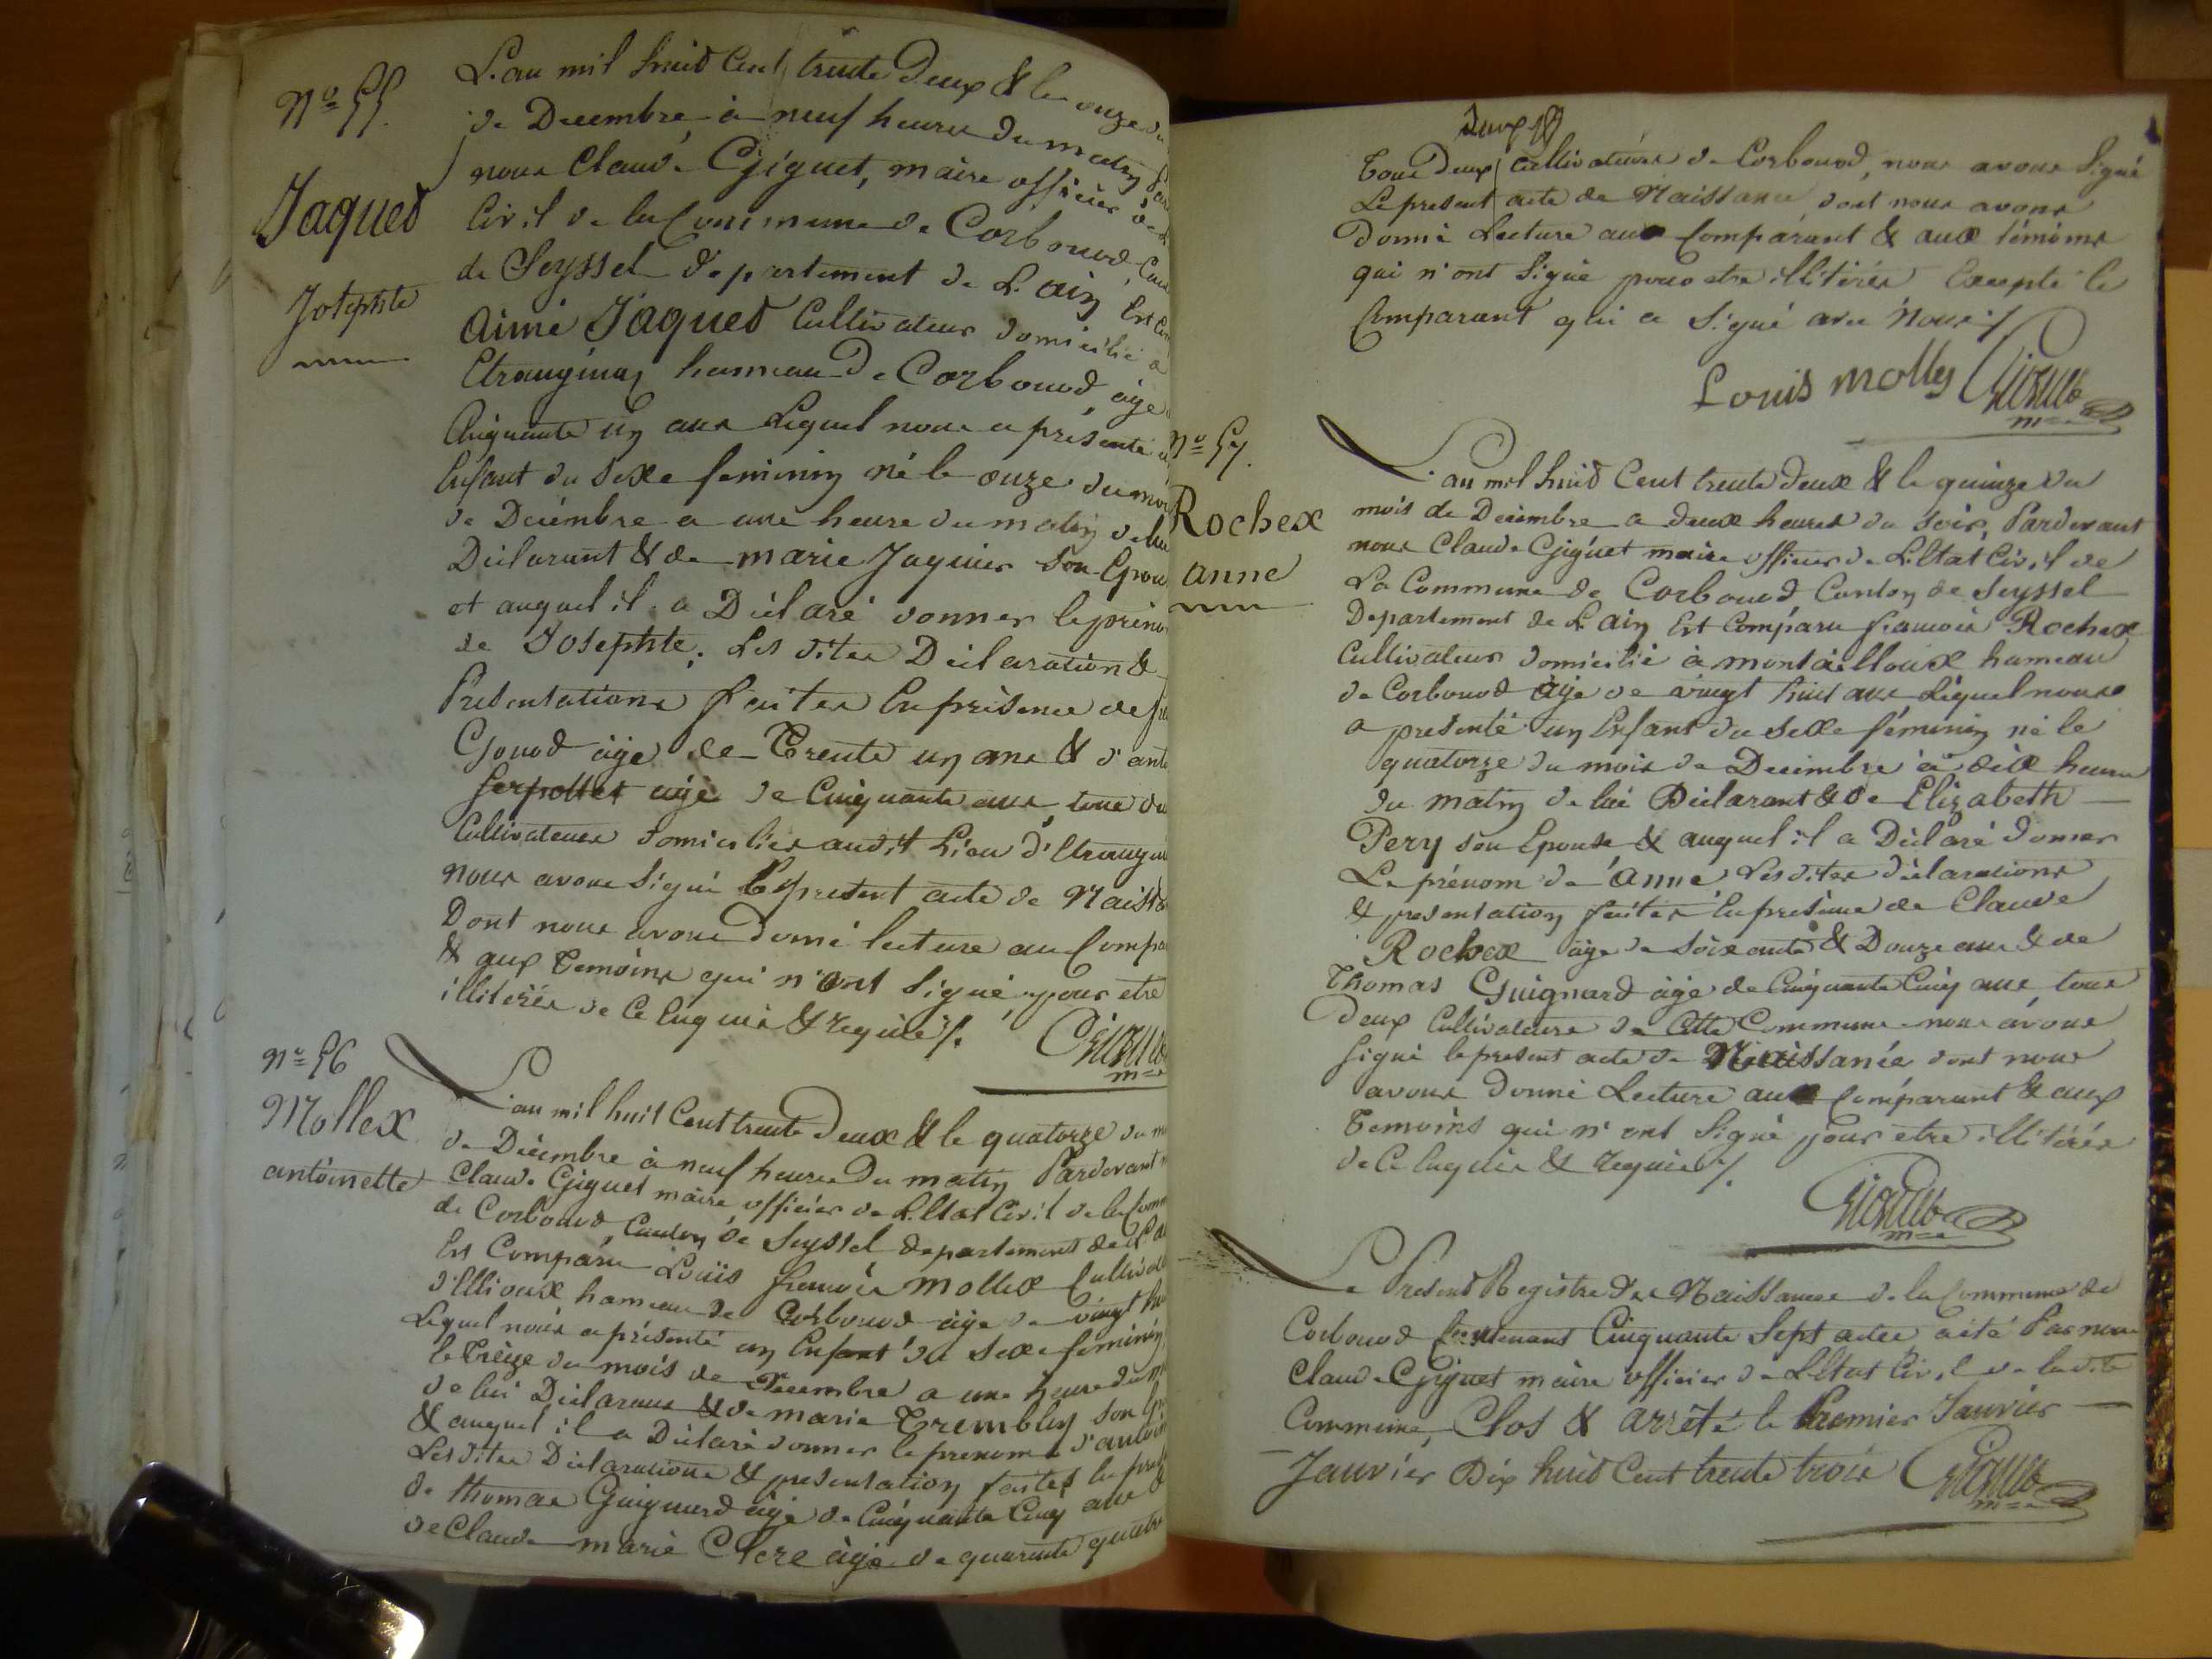 N° 55.
Jaqued
Josephte
L'an mil huid Cent trente Deux & le onze du
de Decembre à neuf heures du matin
nous Claude Gjiguet, maire officier de
Civil de la Commune de Corbonod,
de Seyssel Departement de L'ain Est
Aimé Jaqued Cultivateur domicilié a
Etranginaz hameau de Corbonod, âgé
Cinquante un ans Lequel nous a présenté
Enfant du sexe feminin né le onze du mois
de Décémbre a une heure du matin de lui
Déclarant & de marie Jaguier son Epou
et auquel il a Déclaré donner le préno
de Josephte; Les dites Déclaration &
Présentations faites En présence de
Gonod âgé de Trente un ans & d'ant
âgé de Cinquante ans, tous
Cultivateurs domiciliés audit Lieu d'Etrangin
nous avons Signé Le present acte de Naiss
Dont nous avons donné lecture au Compa
& aux temoins qui n'ont Signé, pour etre
illitérés de Ce Enquis & requis /.
N° 56
Mollex
antoinette
L'an mil huit Cent trente Deux & le quatorze du
de Décembre à neuf heures du matin Pardevant
Claude Gjiguet maire officier de L'Etat Civil de la Comm
de Corbonod, Canton de Seyssel departement de L'ai
Est Comparu Loüis françois Mollex Cultivat
d'Ellioux hameau de Corbonod âgé de vingt hui
Lequel nous a présenté un Enfant du Sexe feminin
le treize du mois de Decembre a une heure du m
de lui Déclarant & de marie Trembley Son Epo
& auquel il a Déclaré donner le prenom d'antoin
Les dites Déclarations & presentation faites En pres
de thomas Guignard âgé de Cinquante Cinq ans &
de Claude marie Clere âgé de quarante quatre
Deux
tous Deux Cultivateurs de Corbonod, nous avons Signé
Le present acte de Naissance dont nous avons
Donné Lecture aux Comparant & aux témoins
qui n'ont Signé pour etre illitérés Excepté le
Comparant qui a Signé avec Nous /
Louis molley
N° 57.
Rochex
anne
L'an mil huid Cent trente deux & le quinze du
mois de Decembre a deux heures du soir, Pardevant
nous Claude Gjiguet maire officier de L'Etat Civil de
La Commune de Corbonod Canton de Seyssel
Departement de L'ain Est Comparu francois Rochex
Cultivateur domicilié à montailloux hameau
de Corbonod âgé de vingt huit ans Lequel nous
a presenté un Enfant du sexe féminin né le
quatorze du mois de Decembre à dix heures
du matin de lui Déclarant & de Elizabeth
Pery son Epouse & auquel il a Déclaré donner
Le prénom de anne, Les dites déclarations
& presentation faites En présence de Claude
Rochex âgé de soixante & Douze ans & de
Thomas Guignard âgé de Cinquante Cinq ans, tous
deux Cultivateurs de Cette Commune nous avons
Signé le present acte de Naissance dont nous
avons donné Lecture aux Comparant & aux
temoins qui n'ont Signé pour etre illitérés
de Ce Enquis & requis /.
Le Present Registre des Naissances de la Commune de
Corbonod Contenant Cinquante Sept actes, a été Par nous
Claude Gjiguet maire officier de L'Etat Civil de ladite
Commune, Clos & arrêté le Premier Janvier
Janvier Dix huid Cent trente trois